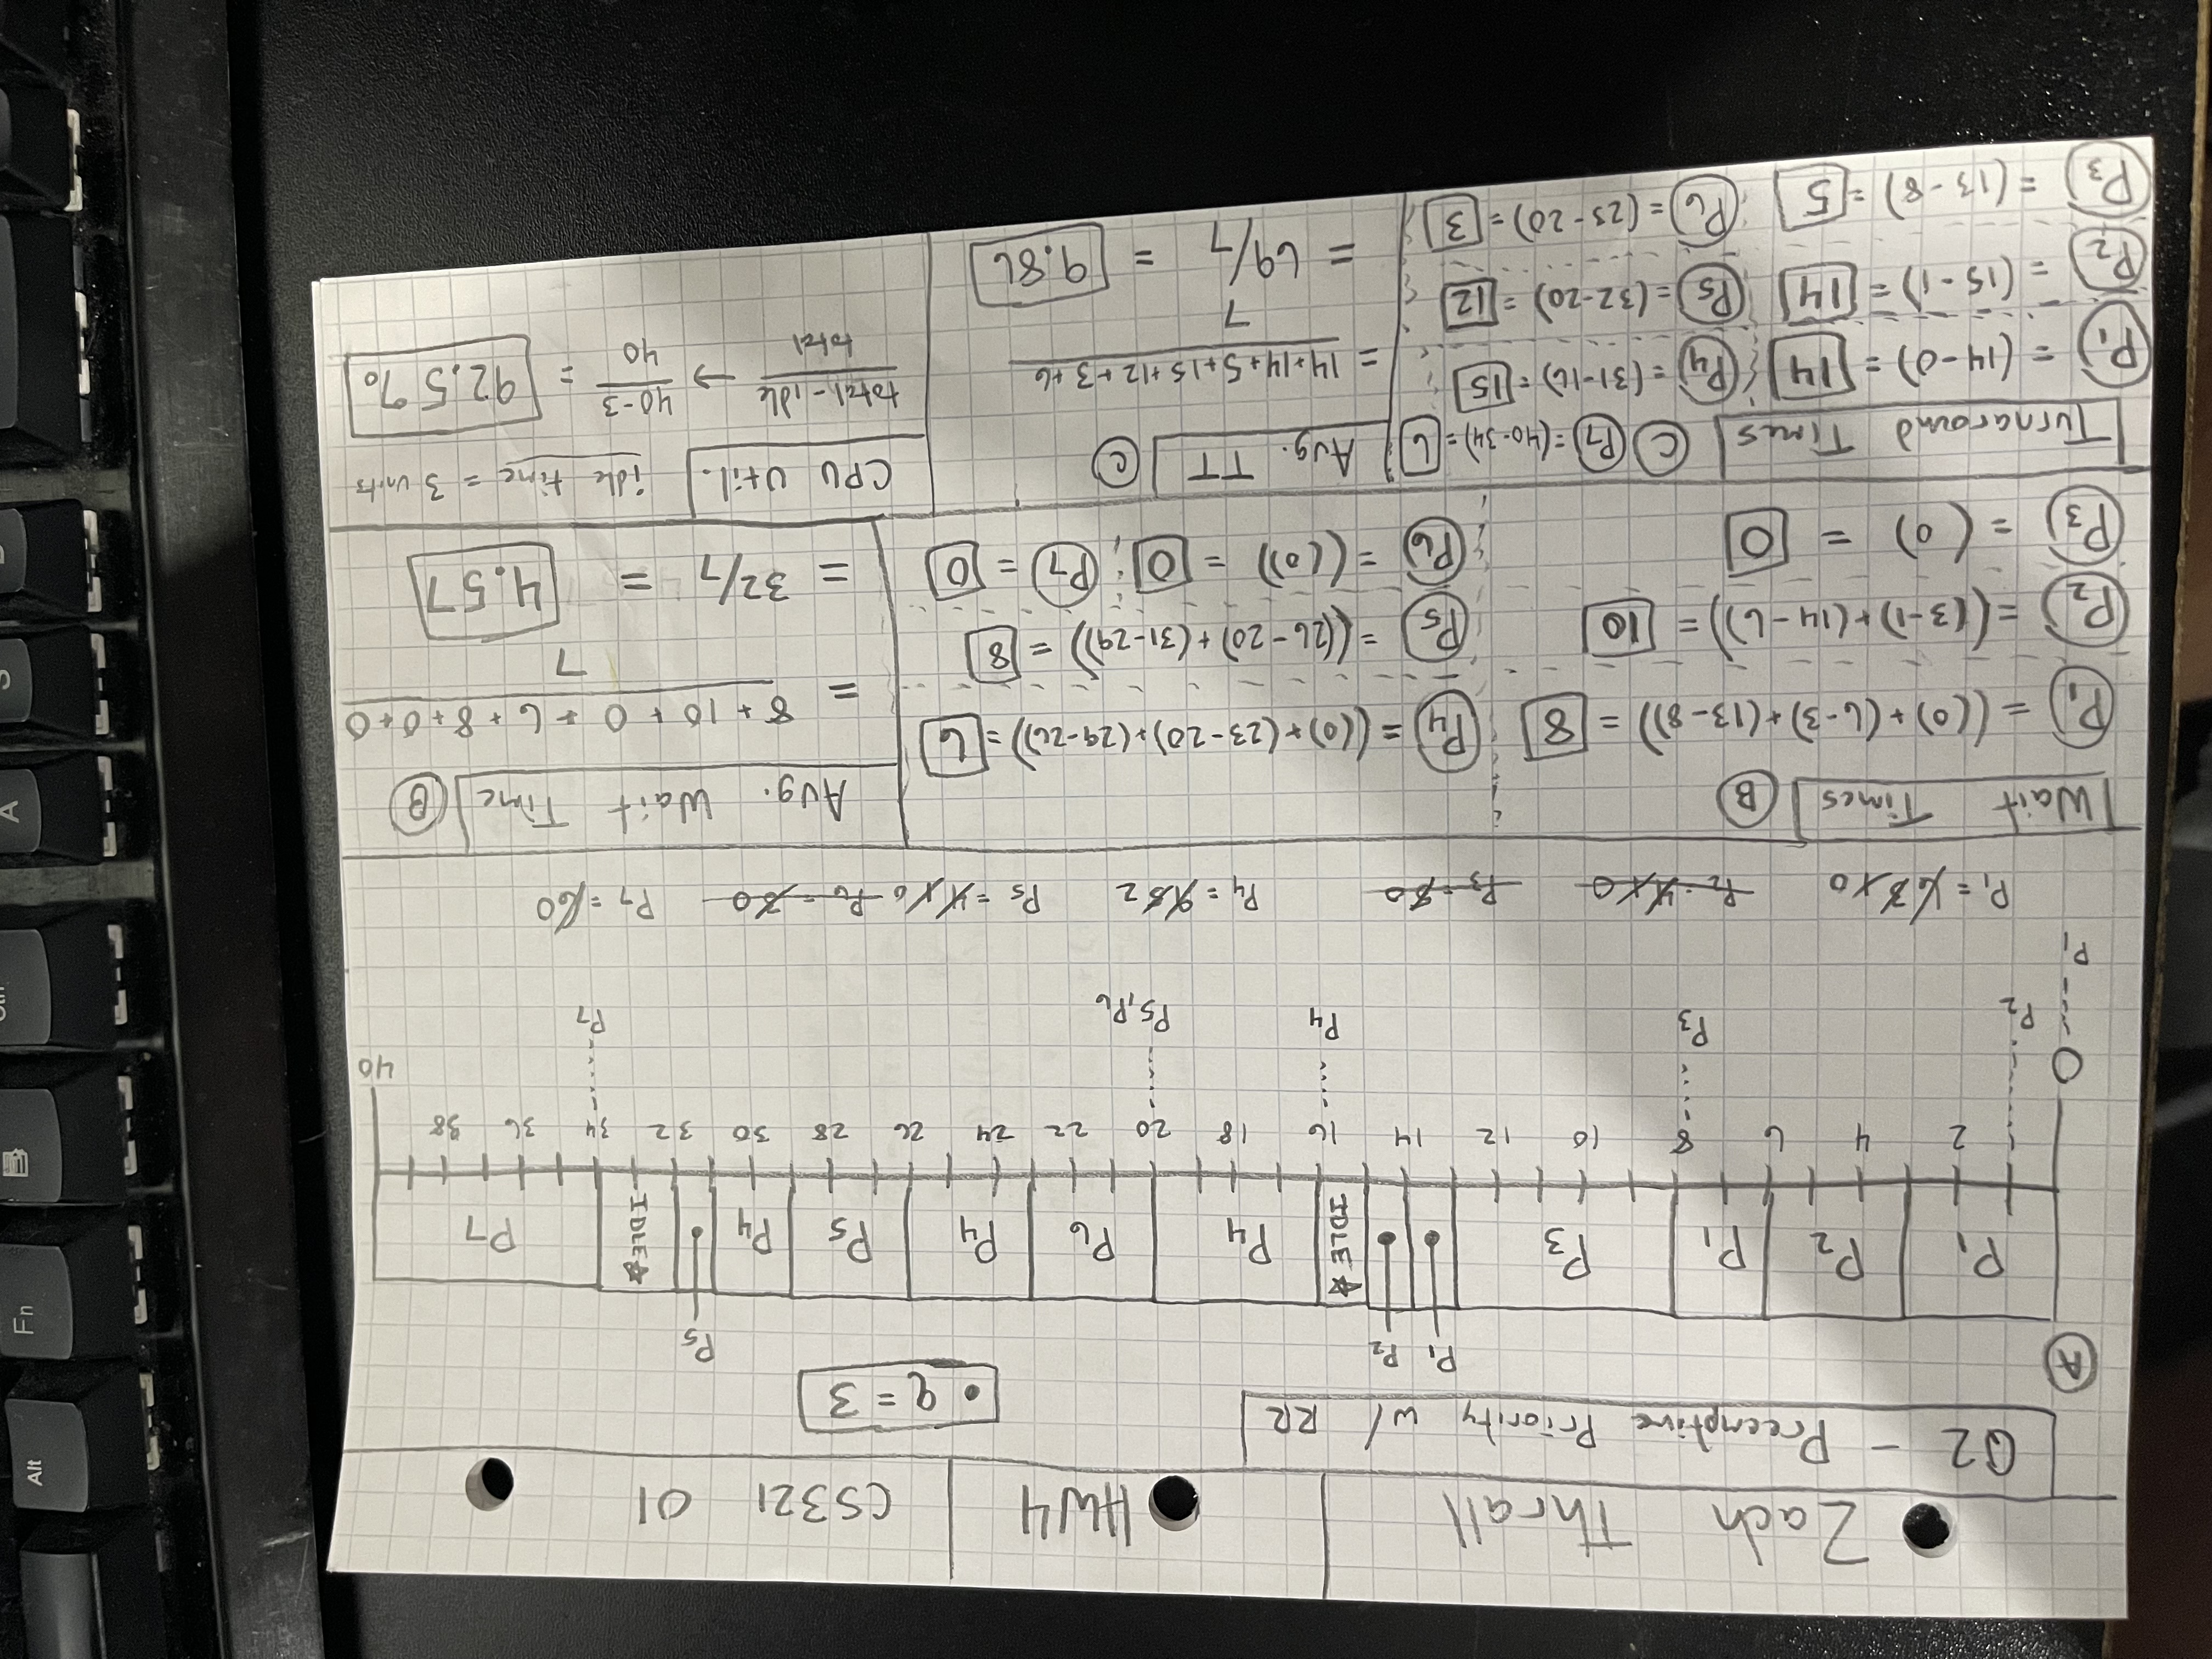 Alt
Fn
Ctrl
A
S
D
Zach Thrall
HW4
CS321 01
Q2 - Preemptive Priority w/ RR
• q = 3
A
P1 P2 P5
P1 P2 P1 P3 IDLE ☆ P4 P6 P4 P5 P4 IDLE ☆ P7
0 2 4 6 8 10 12 14 16 18 20 22 24 26 28 30 32 34 36 38 40
P1 P2 P3 P4 P5,P6 P7
P1 = 6 3 1 0 P2 = 4 1 0 P3 = 5 0 P4 = 9 5 2 P5 = 4 1 0 P6 = 3 0 P7 = 6 0
Wait Times B
P1 = ((0) + (6-3) + (13-8)) = 8
P2 = ((3-1) + (14-6)) = 10
P3 = (0) = 0
P4 = ((0) + (23-20) + (29-26)) = 6
P5 = ((26-20) + (31-29)) = 8
P6 = ((0)) = 0 P7 = 0
Avg. Wait Time B
= 8 + 10 + 0 + 6 + 8 + 0 + 0
7
= 32/7 = 4.57
Turnaround Times C
P7 = (40-34) = 6
P1 = (14-0) = 14
P2 = (15-1) = 14
P3 = (13-8) = 5
P4 = (31-16) = 15
P5 = (32-20) = 12
P6 = (23-20) = 3
Avg. TT C
= 14+14+5+15+12+3+6
7
= 69/7 = 9.86
CPU Util. idle time = 3 units
total-idle → 40-3 = 92.5%
total 40